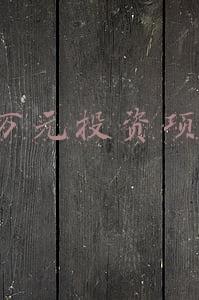 万元投资项